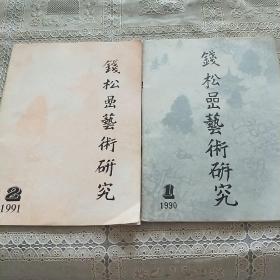 錢松喦藝術研究
2
1991
錢松喦藝術研究
1
1990